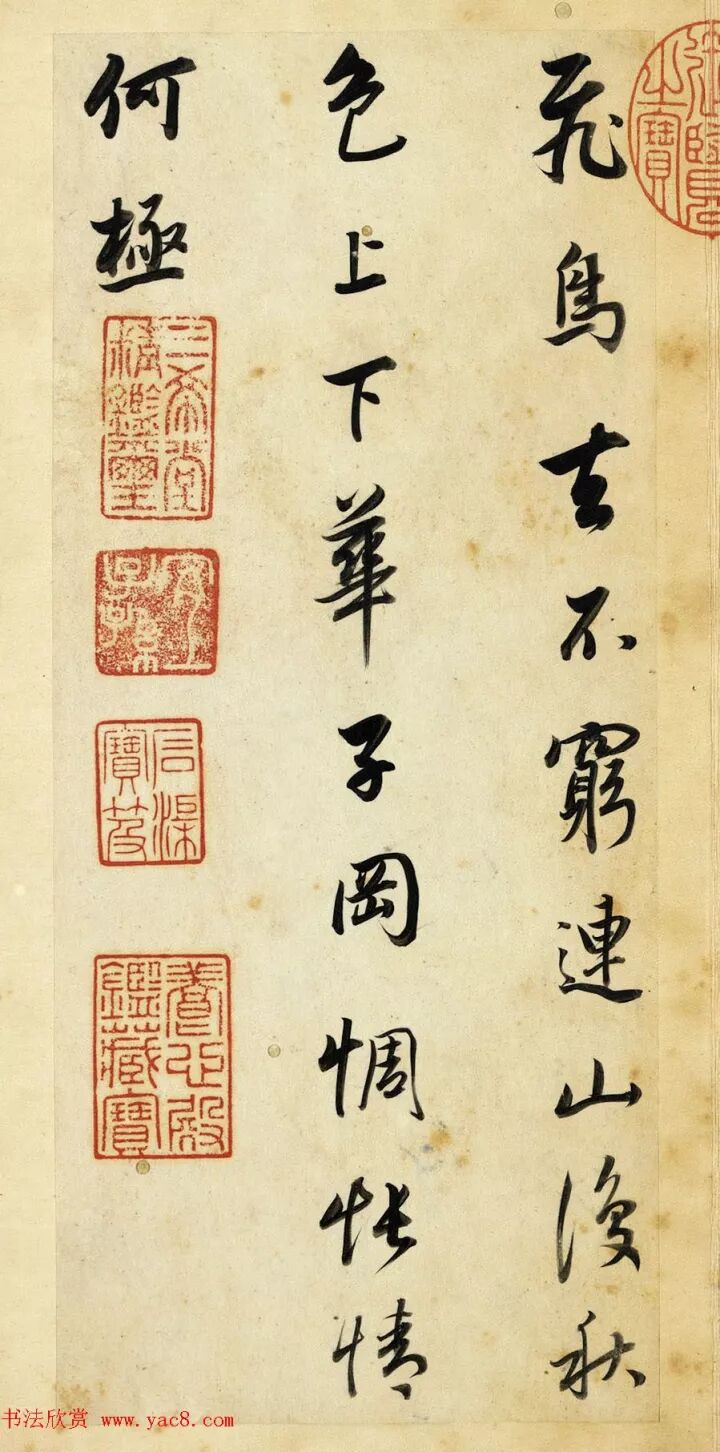 飛鳥去不窮連山復秋
色上下華子岡惆悵情
何極
三希堂精鑑璽
宜子孫
石渠寶笈
養心殿鑑藏寶
书法欣赏 www.yac8.com